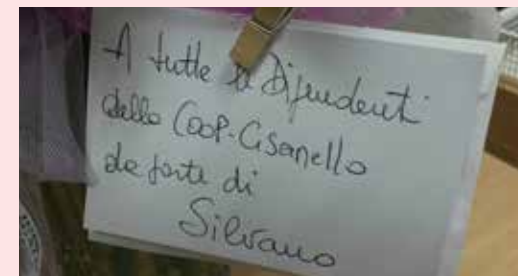 A tutte le Dipendenti
della COOP-Cisanello
da parte di
Silvano